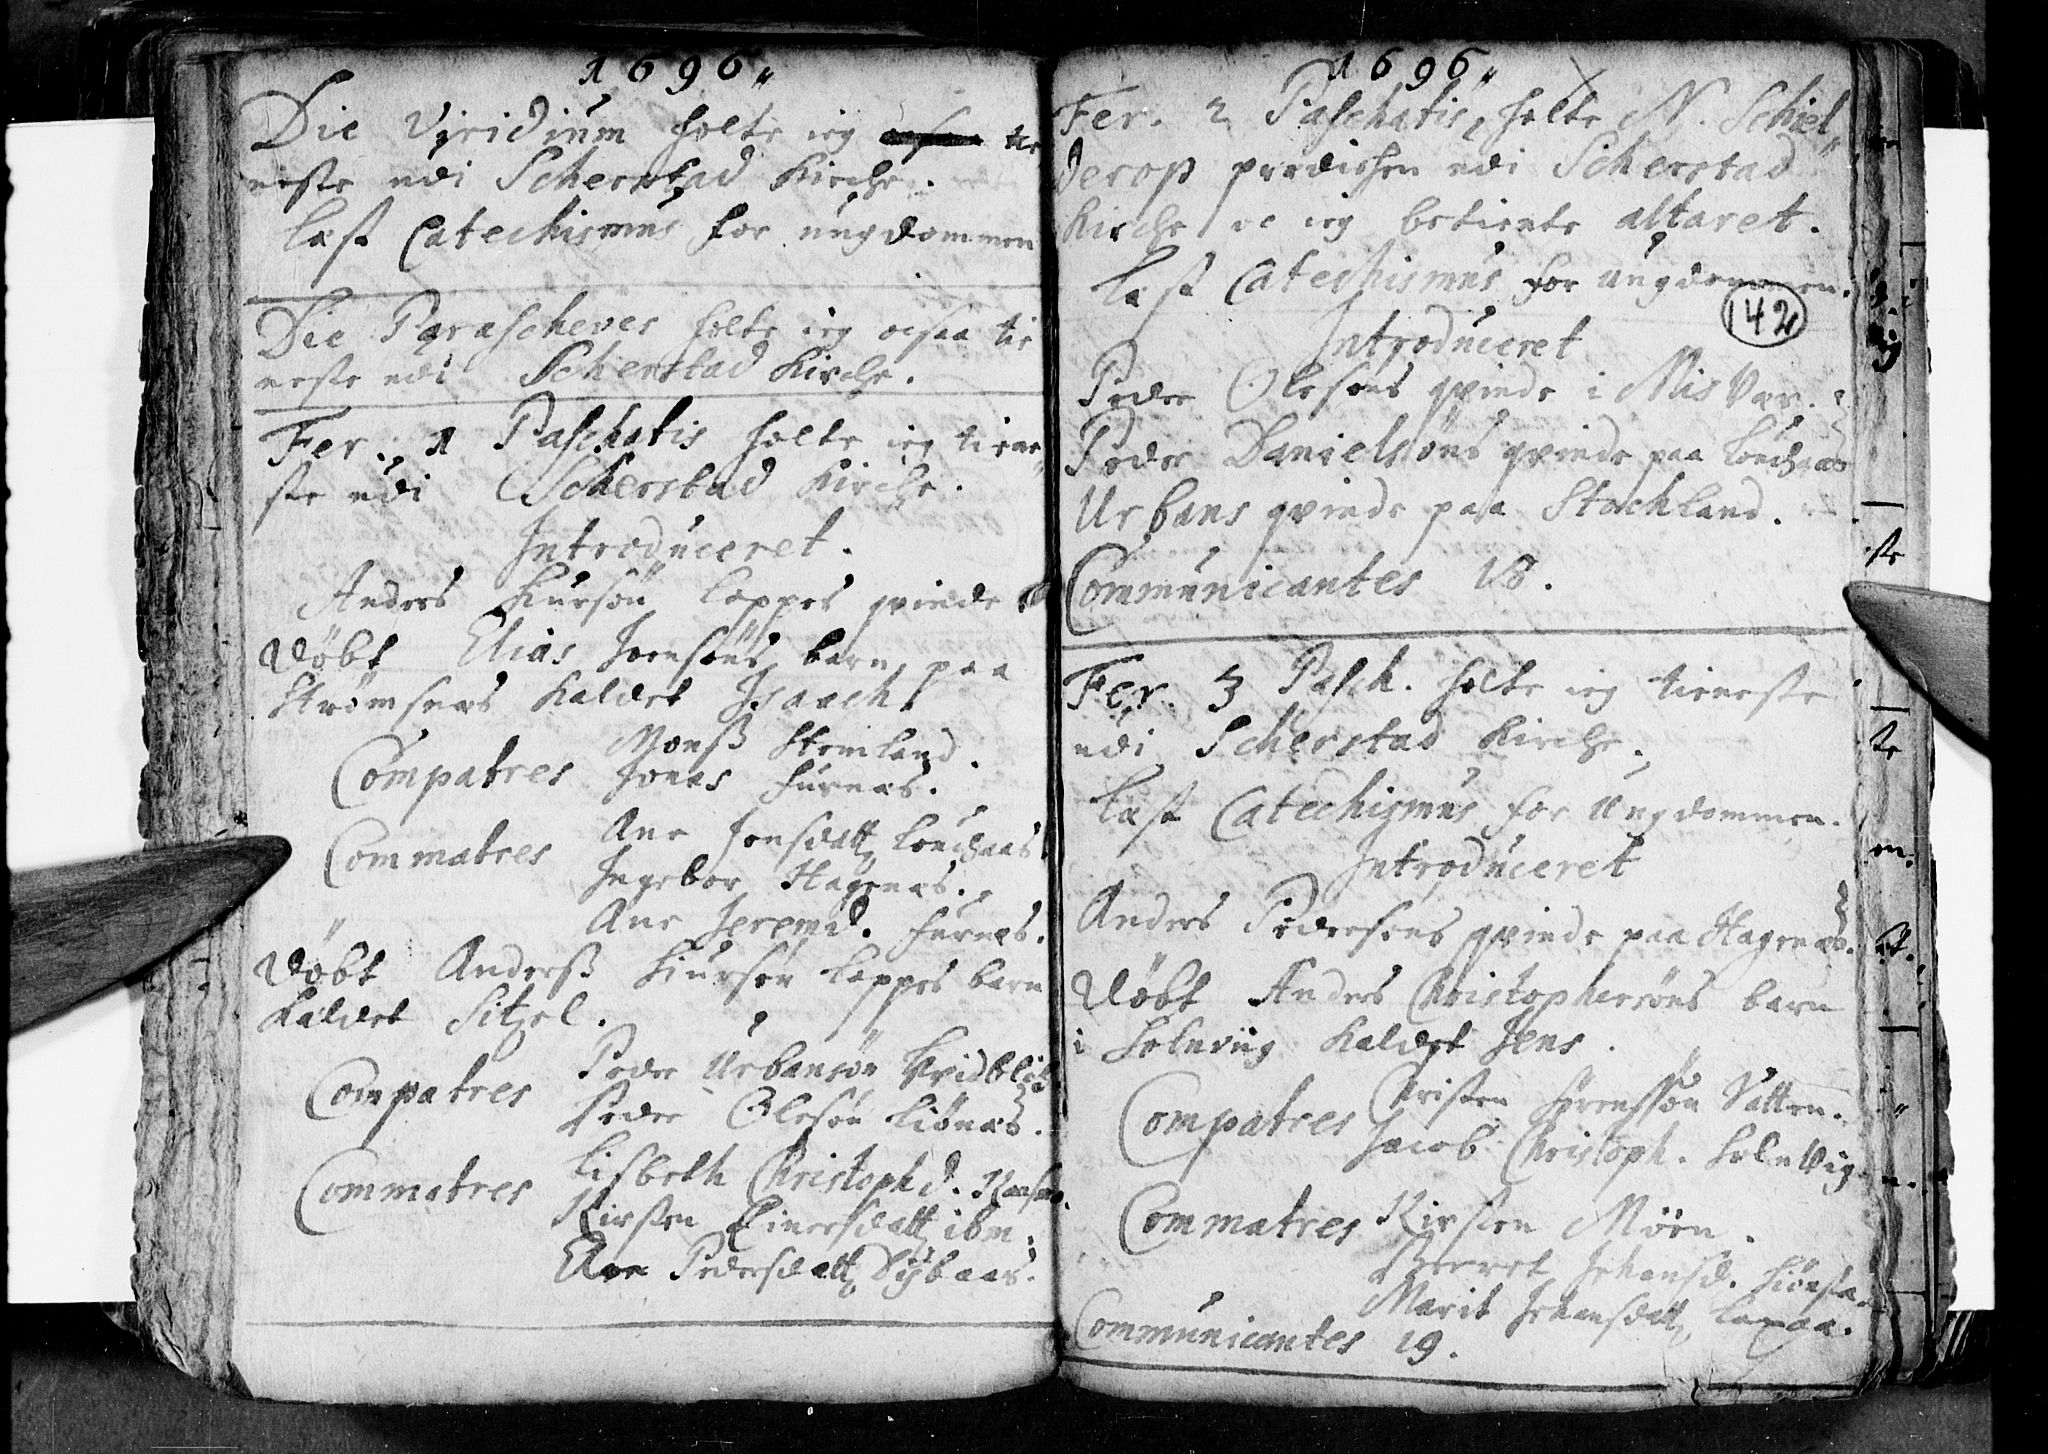 1696
Die Viridium holte ieg tie
neste udi Scherstad Kirche.
Læst Catechismus for ungdommen
Die Parascheves holte ieg ocsaa tie
neste udi Scherstad Kirche.
Fer. 1 Paschatis holte ieg tiene
ste udi Scherstad Kirche.
Introduceret.
Anders Siursøn Lappes qvinde
Døbt Elias Joensøns barn paa
Strømsnes Kaldet Isaach
Monß Steinland.
Compatres Jonas Furnæs.
Ane Jonsdatt
Commatres
Ingebor Hagenæs.
Ane Jeremd. Furnæs.
Døbt Anderß Siursøn Lappes barn
Kaldet Sitzel.
Peder Urbansøn
Compatres
Peder Olesøn Liønæs.
Lisbeth Christophd.
Commatres
Kirsten Einersdatt ibm.
Ane Pedersdatt
1696
Fer. 2 Paschatis, holte N. Schiel
derop prædichen udi Scherstad
Kirche oc ieg betiente altaret.
Læst Catechismus for ungdommen.
142
Introduceret
Peder Olesøns qvinde i Misvær.
Peder Danielsøns qvinde paa
Urbans qvinde paa Stochland.
Communicantes 18.
Fer. 3 Pasch. holte ieg tieneste
udi Scherstad Kirche.
Læst Catechismus for Ungdommen.
Introduceret
Anders Pedersøns qvinde paa Hagenæs.
Døbt Anders Christophersøns barn
i Kaldet Jens.
Christen Sørenssøn Vatten.
Compatres
Jacob Christoph.
Commatres Kirsten Møen.
Berret Johansd.
Marit Johansdatt
Communicantes 19.